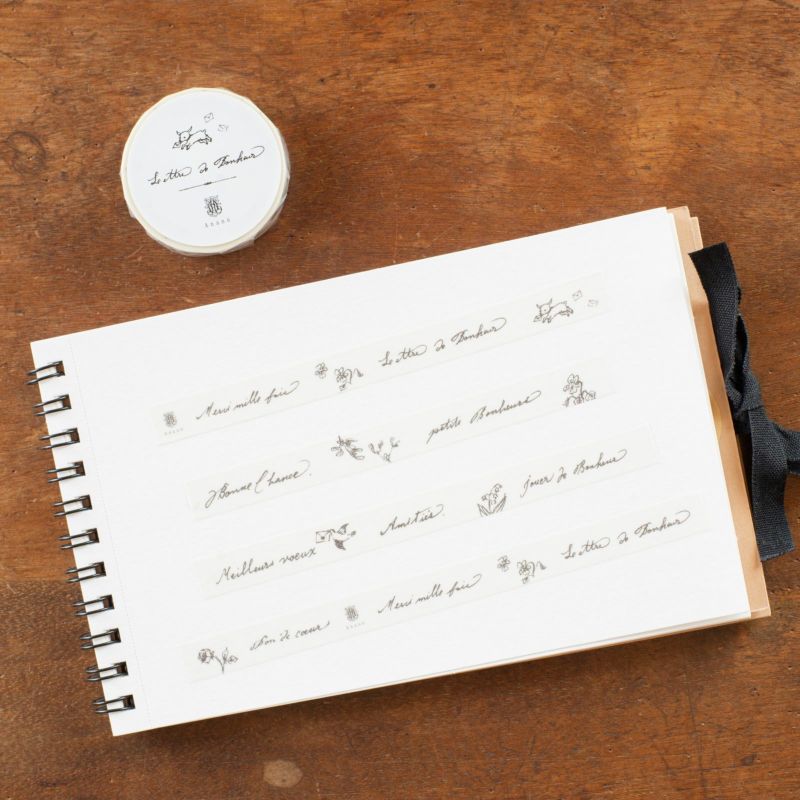 Lettre de Bonheur
Merci mille fois Lettre de Bonheur
Bonne Chance. petits Bonheurs
Meilleurs voeux Amitiés. jouer de Bonheur
Don de coeur Merci mille fois Lettre de Bonheur